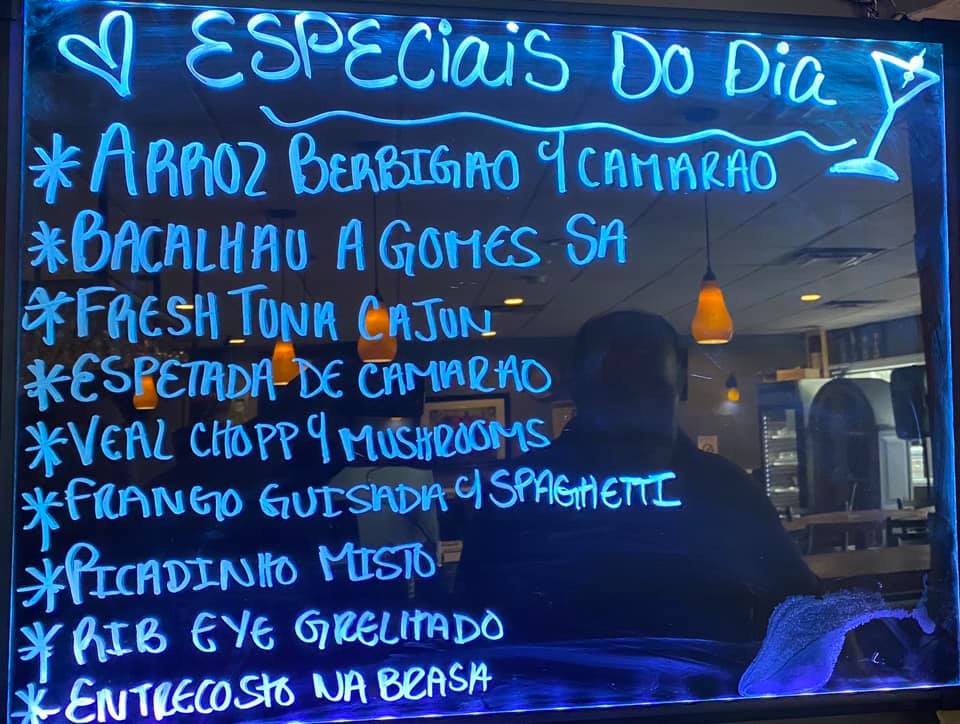 ESPECiAiS DO DiA
* ARROZ BERBIGAO Y CAMARAO
* BACALHAU A GOMES SA
* FRESH TUNA CAJUN
* ESPETADA DE CAMARAO
* VEAL CHOPP Y MUSHROOMS
* FRANGO GUISADA Y SPAGHETTI
* PICADINHO MISTO
* RIB EYE GRELHADO
* ENTRECOSTO NA BRASA